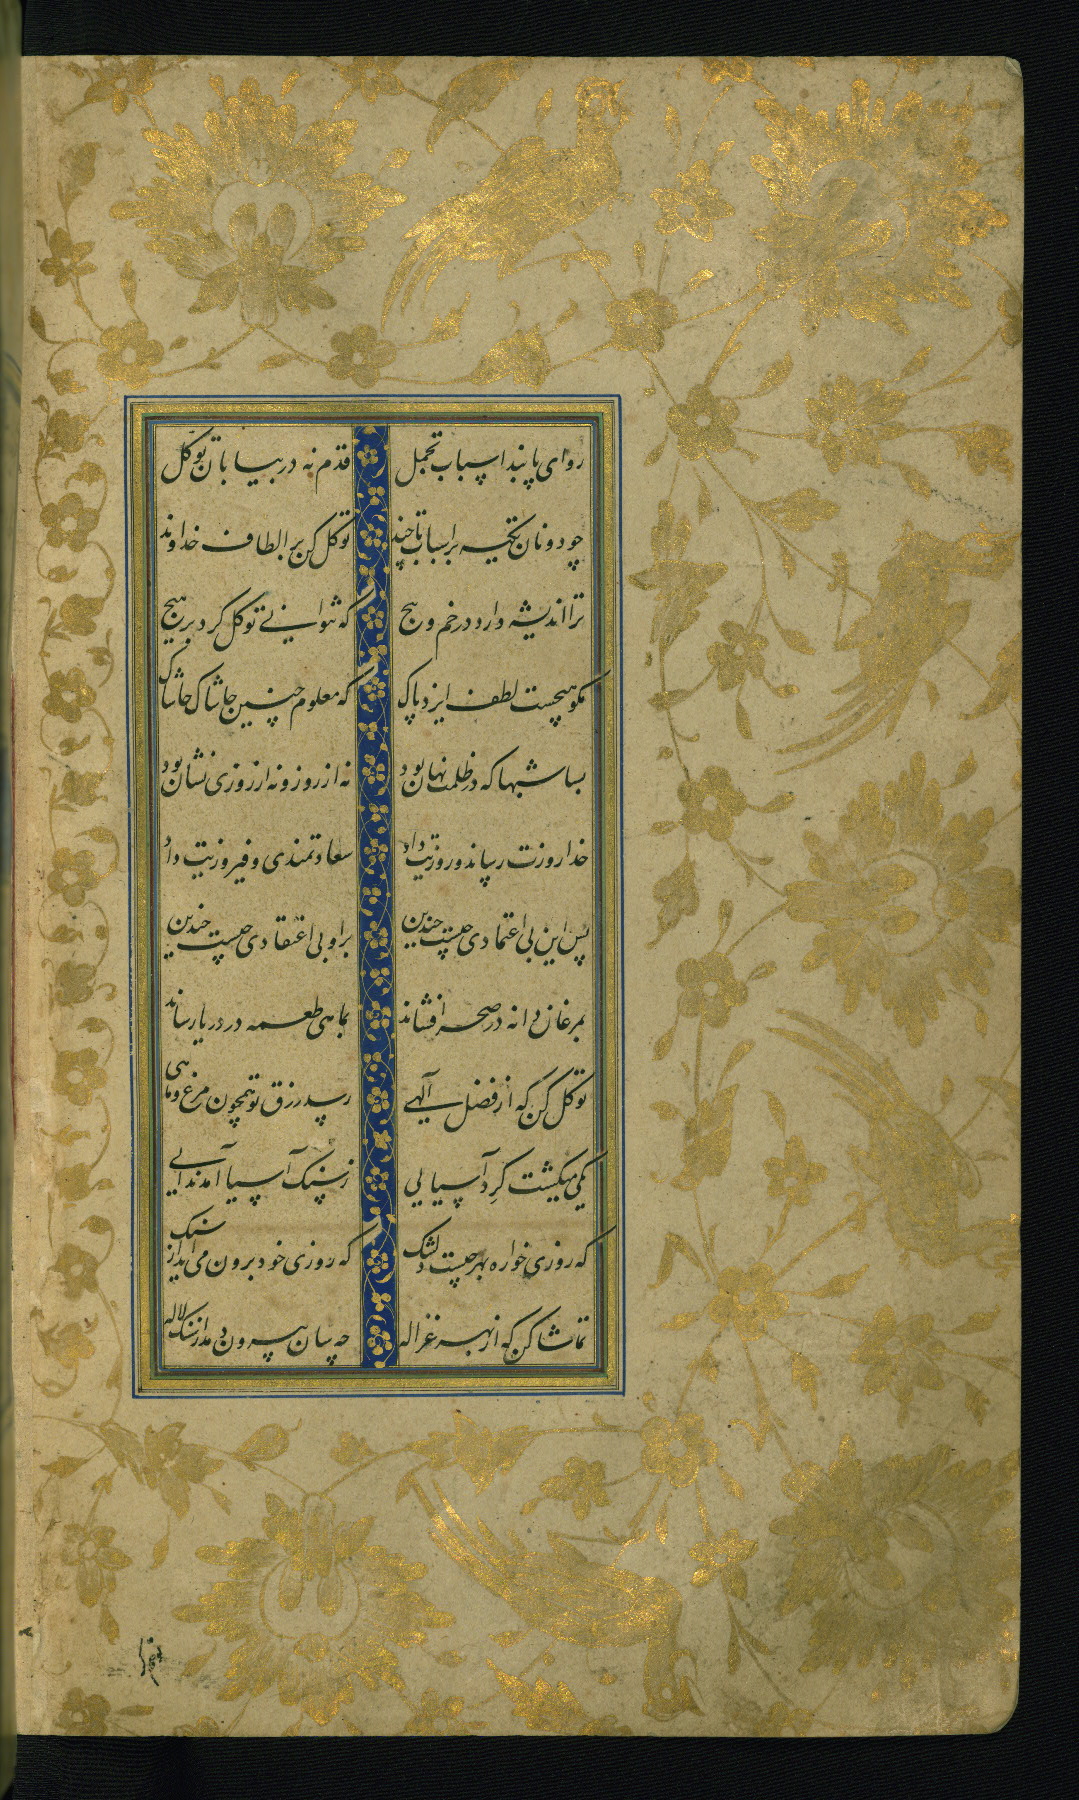 رو ای پابند اسباب تجمل قدم نه در بیابان توکل
چو دونان تکیه بر اسباب تا چند توکل کن بر الطاف خداوند
ترا اندیشه دارد در خم و پیچ که نتوانی توکل کرد بر هیچ
مگو هیچست لطف ایزد پاک که معلوم چنین حاشاک حاشاک
بسا شبها که در ظلمت نهان بود نه از روز و نه از روزی نشان بود
خدا روزت رساند و روزیت داد سعادتمندی و فیروزیت داد
پس این بی اعتمادی چیست چندین بر او بی اعتقادی چیست چندین
بمرغان دانه در صحرا فشاند بماهی طعمه در دریا رساند
توکل کن که از فضل آلهی رسد رزق تو همچون مرغ و ماهی
یکی میکشت گرد آسیایی ز سنک آسیا آمد ندایی
که روزی خواره بهر چیست دلتنک که روزی خود برون می آید از سنک
تماشا کن که از بهر غزاله چه سان بیرون دمد از سنک لاله